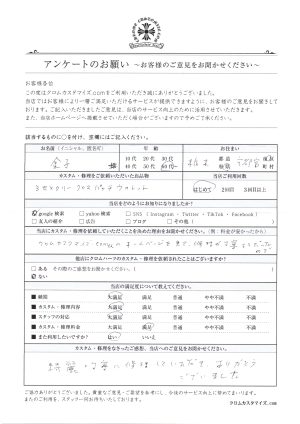 アンケートのお願い ~お客様のご意見をお聞かせください~
お客様各位
この度はクロムカスタマイズ.comをご利用いただき誠にありがとうございました。
当店ではお客様により一層ご満足いただけるサービスが提供できますように、お客様のご意見をお聞きして
おります。ご記入いただきましたご意見は、当店のサービス向上のために活用させていただきます。
また、当店ホームページへ掲載させていただく場合がございますので予めご了承ください。
該当するものに○を付け、空欄にはご記入ください。
お名前(イニシャル、匿名可) 年代 お住まい
金子 様 10代 20代 30代 40代 50代 60代~ 栃木
カスタム・修理をご依頼いただいた出品物 当店ご利用回数
はじめて 2回目 3回目以上
当店をどのようにお知りになりましたか?
google 検索 yahoo 検索 SNS(Instagram・Twitter・TikTok・Facebook)
友人の紹介 広告 ブログ その他( )
カスタム・修理を依頼していただくことを決めた理由をお聞かせください。(例:料金が安かったから)
クロムカスタマイズ.comのホームページを見て、修理が丁寧
他店にクロムハーツのカスタム・修理を依頼されたことはございますか?
ある その際のご感想をお聞かせください。( )
ない
当店の満足度について教えてください。
納期 大満足 満足 普通 やや不満 不満
カスタム・修理内容 大満足 満足 普通 やや不満 不満
スタッフの対応 大満足 満足 普通 やや不満 不満
カスタム・修理料金 大満足 満足 普通 やや不満 不満
また利用したいですか? はい いいえ
カスタム・修理をなさったご感想、当店へのご意見をお聞かせください。
綺麗に丁寧に修理していただき、ありがとう
ございました
ご協力ありがとうございました。貴重なご意見・ご要望を参考にし、今後のサービス向上に努めてまいります。
またのご利用を、スタッフ一同お待ちいたしております。
クロムカスタマイズ.com